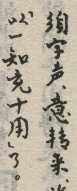 须字声意转来
以一知充十用了。